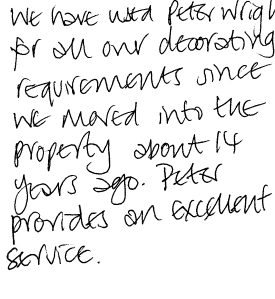 We have used Peter Wrigh
for all our decorating
requirements since
we moved into the
property about 14
years ago. Peter
provides an excellent
service.